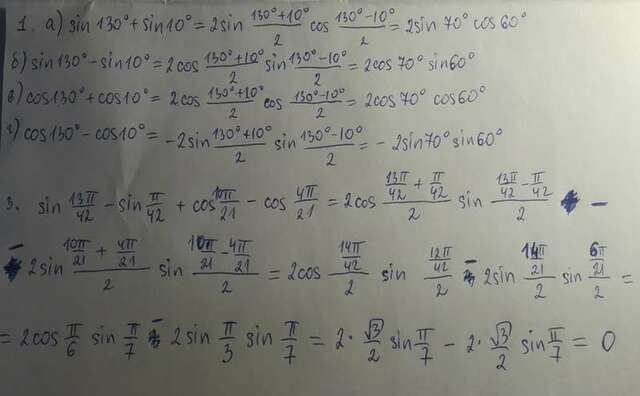 1. а) sin 130° + sin 10° = 2 sin (130°+10°)/2 cos (130°-10°)/2 = 2 sin 70° cos 60°
б) sin 130° - sin 10° = 2 cos (130°+10°)/2 sin (130°-10°)/2 = 2 cos 70° sin 60°
в) cos 130° + cos 10° = 2 cos (130°+10°)/2 cos (130°-10°)/2 = 2 cos 70° cos 60°
г) cos 130° - cos 10° = -2 sin (130°+10°)/2 sin (130°-10°)/2 = - 2 sin 70° sin 60°
3. sin 13π/42 - sin π/42 + cos 10π/21 - cos 4π/21 = 2 cos (13π/42 + π/42)/2 sin (13π/42 - π/42)/2 -
- 2 sin (10π/21 + 4π/21)/2 sin (10π/21 - 4π/21)/2 = 2 cos (14π/42)/2 sin (12π/42)/2 - 2 sin (14π/21)/2 sin (6π/21)/2 =
= 2 cos π/6 sin π/7 - 2 sin π/3 sin π/7 = 2 · √3/2 sin π/7 - 2 · √3/2 sin π/7 = 0